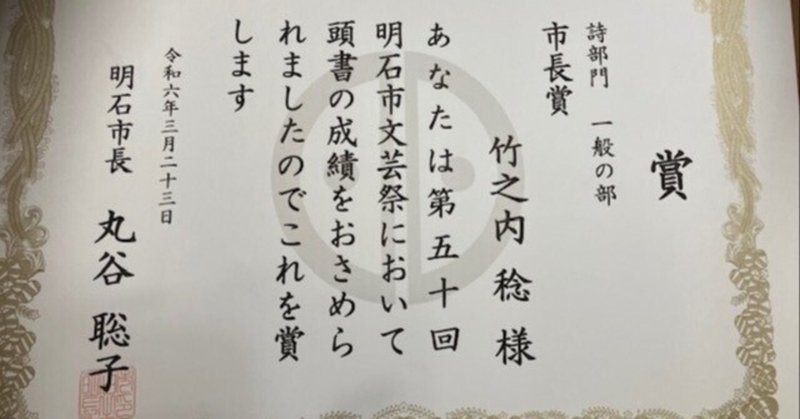 賞
詩部門 一般の部
市長賞
竹之内 稔 様
あなたは第五十回
明石市文芸祭において
頭書の成績をおさめら
れましたのでこれを賞
します
令和六年三月二十三日
明石市長 丸谷 聡子